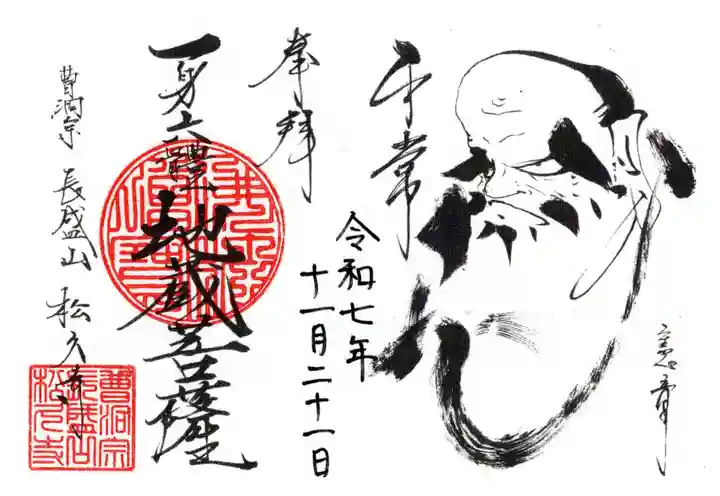 平常
奉拝
令和七年
十一月二十一日
一身六體
地蔵菩薩
曹洞宗 長盛山 松久寺
曹洞宗
長盛山
松久寺